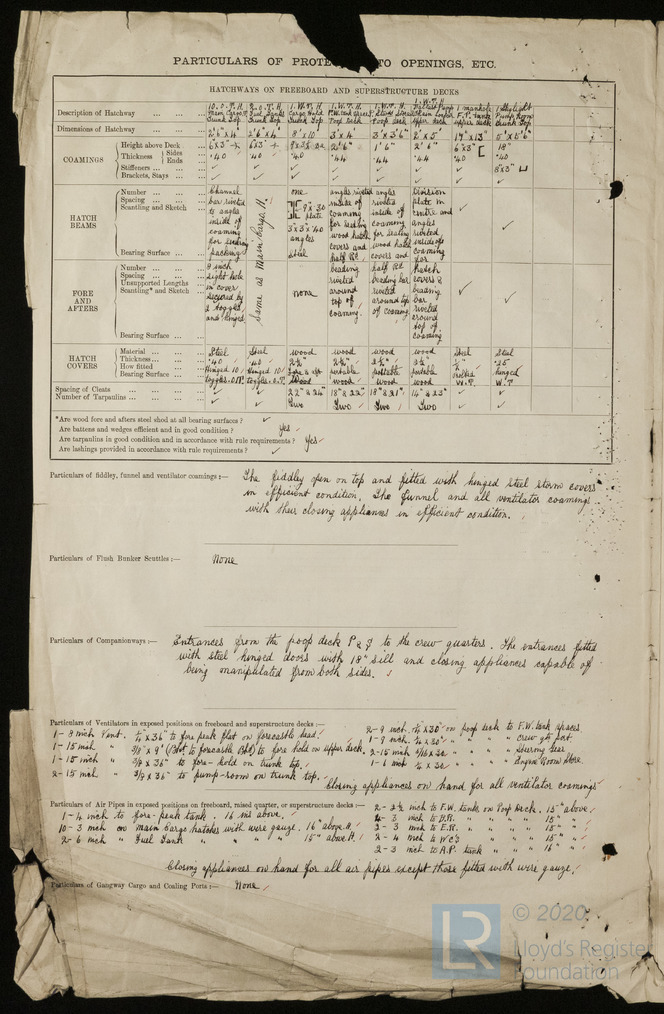 PARTICULARS OF PROTE TO OPENINGS, ETC.
HATCHWAYS ON FREEBOARD AND SUPERSTRUCTURE DECKS
Description of Hatchway
10. O.T.H. Main Cargo Trunk Top
2. O.T.H. Fuel Tanks Trunk Top
1. W.T.H. Cargo Hold Trunk Top
1. W.T.H. Poop deck
1. W.T.H. Stores Poop deck
1. W.T.H. upper deck
1 manhole F.P. tank upper deck
1 Skylight Pump Room Trunk Top
Dimensions of Hatchway
2'6" x 4' 2'6" x 4' 8' x 10' 3' x 4' 3' x 3'6" 2' x 5' 19" x 13"
COAMINGS
Height above Deck
6 x 3" 6 x 3" 2'6" 1'6" 2'6" 6 x 3" 18"
Thickness Sides Ends
.40 .40 .40 .44 .44 .44 .40 .40
Stiffeners
✓ ✓ ✓ ✓ ✓ ✓ ✓ 8"x3"
Brackets, Stays
✓ ✓ ✓ ✓ ✓ ✓ ✓
HATCH BEAMS
Number
Spacing
Scantling and Sketch
Bearing Surface
Channel bar riveted to angles inside of coaming for seating packing
Same as Main Cargo H.
one
plate
3 x 3 x .40
angles
steel
angles riveted inside of coaming for seating wood hatch covers and half Rd. beading riveted around top of coaming.
angles riveted inside of coaming for seating wood hatch covers and half Rd beading bar riveted around top of coaming
Division plate in centre and angles riveted inside of coaming for hatch covers & beading bar riveted around top of coaming
FORE AND AFTERS
Number
Spacing
Unsupported Lengths
Scantling* and Sketch
Bearing Surface
8 inch sight hole in cover secured by 2 toggles and hinged
none
HATCH COVERS
Material
Steel Steel wood wood wood wood Steel Steel
Thickness
.40 .40 2½" 2½" 2½" 2½" ½" .25
How fitted
Hinged 10 Hinged 10 Fore & aft portable portable portable bolted hinged
Bearing Surface
toggles. O.T. toggles. O.T. Wood wood wood wood W.T. W.T.
Spacing of Cleats
✓ ✓ 22" & 24" 18" & 22" 18" & 21" 14" & 23" ✓ ✓
Number of Tarpaulins
✓ ✓ Two Two Two Two ✓ ✓
*Are wood fore and afters steel shod at all bearing surfaces ? ✓
Are battens and wedges efficient and in good condition ? Yes
Are tarpaulins in good condition and in accordance with rule requirements ? Yes
Are lashings provided in accordance with rule requirements ? ✓
Particulars of fiddley, funnel and ventilator coamings :—
The fiddley open on top and fitted with hinged steel storm covers
in efficient condition, The funnel and all ventilator coamings
with their closing appliances in efficient condition.
Particulars of Flush Bunker Scuttles :— None
Particulars of Companionways :— Entrances from the poop deck P & S to the crew quarters. The entrances fitted
with steel hinged doors with 18" sill and closing appliances capable of
being manipulated from both sides.
Particulars of Ventilators in exposed positions on freeboard and superstructure decks :—
1 - 9 inch Vent. x 36" to fore peak flat on forecastle head.
1 - 15 inch " to fore hold on upper deck.
1 - 15 inch " x 36" to fore-hold on trunk top.
2 - 15 inch " x 36" to pump-room on trunk top.
2 - 9 inch. x 30" on poop deck to F.W. tank spaces
1 - 9 inch. x 30" " " " crew qts port.
2 - 15 inch " " " steering gear
1 - 6 inch x 30 " " " Engine Room Store.
Closing appliances on hand for all ventilator coamings
Particulars of Air Pipes in exposed positions on freeboard, raised quarter, or superstructure decks :—
1 - 4 inch to fore-peak tank. 16 ins above.
10 - 3 inch on Main Cargo hatches with wire gauze. 16" above H.
2 - 6 inch " Fuel Tank " " " 15" above H.
2 - 2½ inch to F.W. tanks on Poop Deck. 15" above
4 - 3 inch to D.B. " " " 15" "
2 - 3 inch to E.R. " " " 15" "
2 - 4 inch to WC's " " " 15" "
2 - 3 inch to A.P. tank " " 16" "
Closing appliances on hand for all air pipes except those fitted with wire gauze.
Particulars of Gangway Cargo and Coaling Ports :— None
LR
© 2020
Lloyd's Register
Foundation